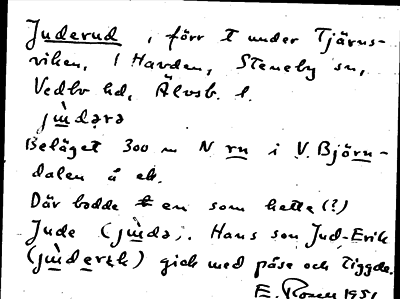 Juderud, förr t under Tjärns-
viken, i Havden, Steneby sn,
Vedbo hd, Älvsb. l.
jɯ̀dərə
Beläget 300 m N rn i V. Björn-
dalen å ek.
Där bodde en som hette (?)
Jude (jɯ̀də). Hans son Jud-Erik
(jɯ̀derɪk) gick med påse och tiggde.
E. Rosell 1951